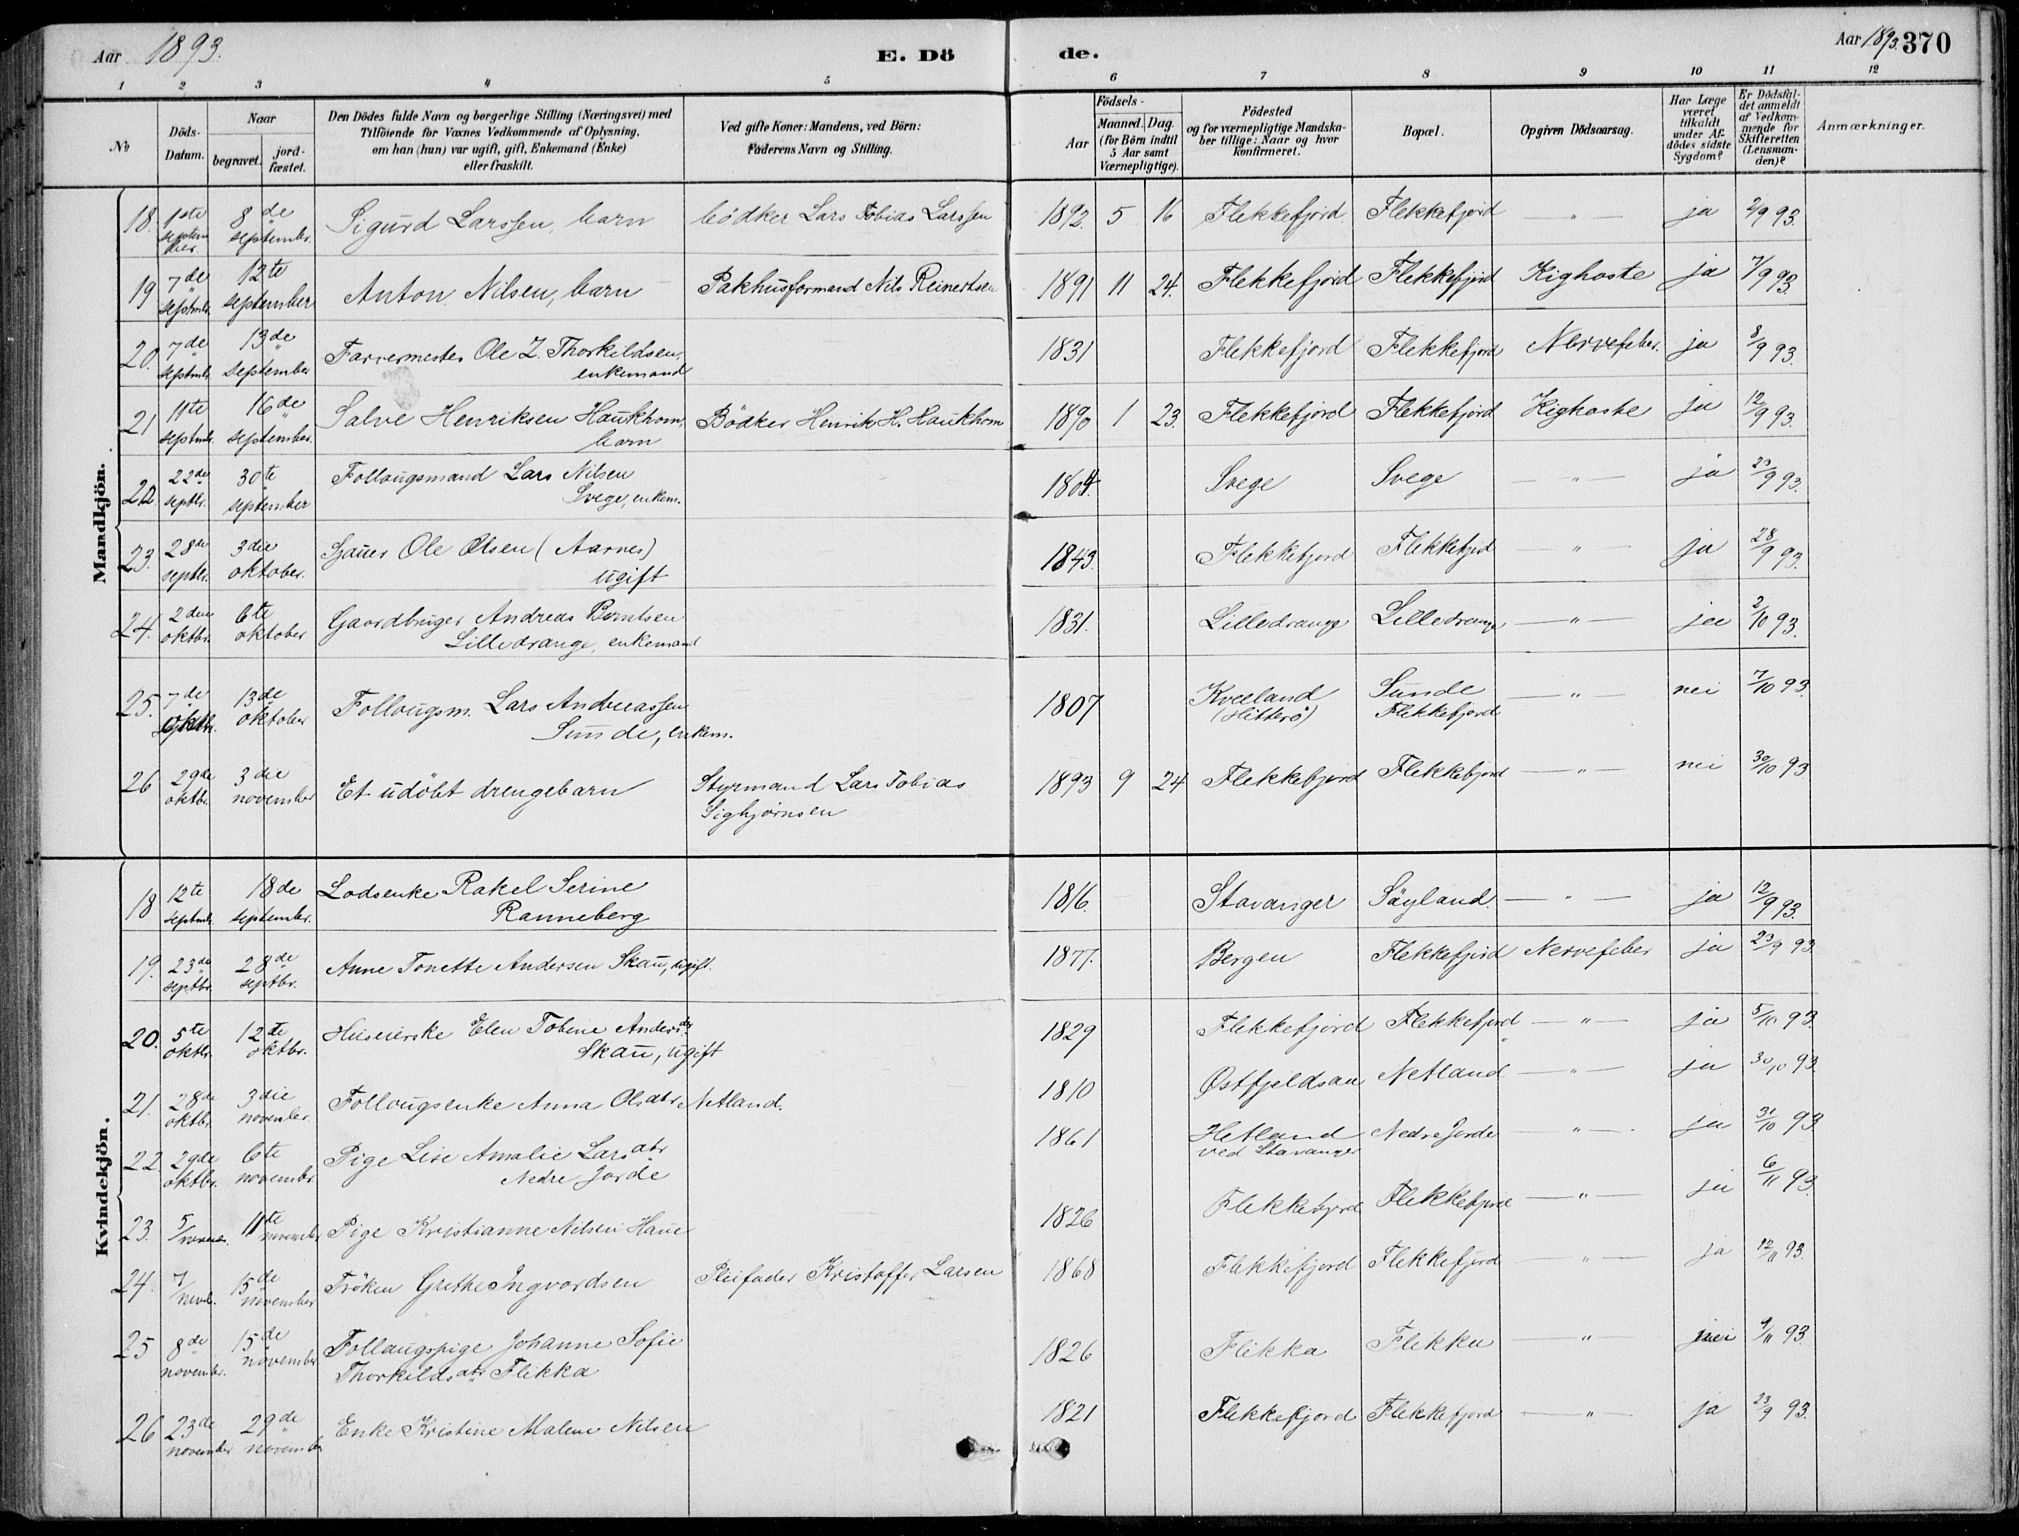 Aar 1893. E. Dö de. Aar 1893. 370
1 2 3 4 5 6 7 8 9 10 11 12
No
Döds-Datum.
Naar
begravet.
jordfæstet.
Den Dödes fulde Navn og borgerlige Stilling (Næringsvei) med
Tilföiende for Voxnes Vedkommende af Oplysning,
om han (hun) var ugift, gift, Enkemand (Enke)
eller fraskilt.
Ved gifte Koner: Mandens, ved Börn:
Faderens Navn og Stilling.
Födsels-
Aar
Maaned. Dag.
(for Börn indtil
5 Aar samt
Værnepligtige).
Födested
og for værnepligtige Mandskaber tillige: Naar og hvor
konfirmeret.
Bopæl.
Opgiven Dödsaarsag.
Har Læge
været
tilkaldt
under Afdödes sidste
Sygdom?
Er Dödsfaldet anmeldt
af Vedkommende for
Skifteretten
(Lensmanden)?
Anmærkninger.
Mandkjön.
18. 1ste september. 8de september. Sigurd Larssen, barn bödker Lars Tobias Larssen 1892. 5 16 Flekkefjord Flekkefjord — " — ja 2/9 93.
19 7de septmbr. 12te september Anton Nilsen, barn Pakhusformand Nils Reinertsen 1891 11 24. Flekkefjord Flekkefjord Kighoste ja 7/9 93.
20. 7de septmbr. 13de september Farvermester Ole Z. Thorkildsen, enkemand 1831 Flekkefjord Flekkefjord Nervefeber. ja 8/9 93.
21 11te septmbr. 16de september. Salve Henriksen Haukhom, barn Bödker Henrik H. Haukhom 1890 1 23. Flekkefjord Flekkefjord Kighoste ja 12/9 93.
22 22de septbr. 30te september Follougsmand Lars Nilsen Svege, enkem. 1804. Svege Svege — " — ja 23/9 93.
23. 28de septbr. 3die oktober. Sjauer Ole Olsen (Aarnes) ugift 1843. Flekkefjord Flekkefjord — " — ja 28/9 93.
24. 2den oktbr. 6te oktober Gaardbruger Andreas Berntsen Lilledrange, enkemand 1831. Lilledrange Lilledrange — " — ja 2/10 93.
25. 7de oktbr. 13de oktober Follougsm. Lars Andreassen Sunde, enkem. 1807 Kveeland (Hitterö) Sunde Flekkefjord — " — nei 7/10 93.
26 29de oktbr. 3die november Et udöbt drengebarn Styrmand Lars Tobias Sigbjörnsen 1893 9 24 Flekkefjord Flekkefjord — " — nei 30/10 93
Kvindekjön.
18 12te septmbr. 18de september. Lodsenke Rakel Serine Ranneberg 1816. Stavanger Söyland. — " — ja 12/9 93.
19. 23de septbr. 28de septbr. Anne Tonette Andersen Skau, ugift. 1877. Bergen Flekkefjord Nervefeber ja 23/9 93.
20. 5te oktbr. 12te oktbr. Huseierske Elen Tobine Andersdr Skau, ugift 1829 Flekkefjord Flekkefjord — " — ja 5/10 93.
21. 28de oktbr. 3die november. Follougsenke Anna Olsdtr Netland. 1810 Østfjeldsan Netland — " — ja 30/10 93
22 29de oktbr. 6te november. Pige Lise Amalie Larsdtr Nedre Jorde 1861 Hetland ved Stavanger Nedre Jorde — " — ja 31/10 93
23. 5/november. 11te november Pige Kristianne Nilsen Haue 1826 Flekkefjord Flekkefjord — " — ja 6/11 93.
24. 7/novb. 15de november Fröken Grethe Ingvardsen Pleifader Kristoffer Larsen 1868 Flekkefjord Flekkefjord — " — ja 12/11 93.
25 8de november. 15de november Follaugspige Johanne Sofie Thorkildsdtr Flikka 1826 Flikka Flikka — " — nei 9/11 93.
26 23de november 29de november Enke Kristine Malene Nilsen 1821 Flekkefjord Flekkefjord — " — ja 23/9 93.